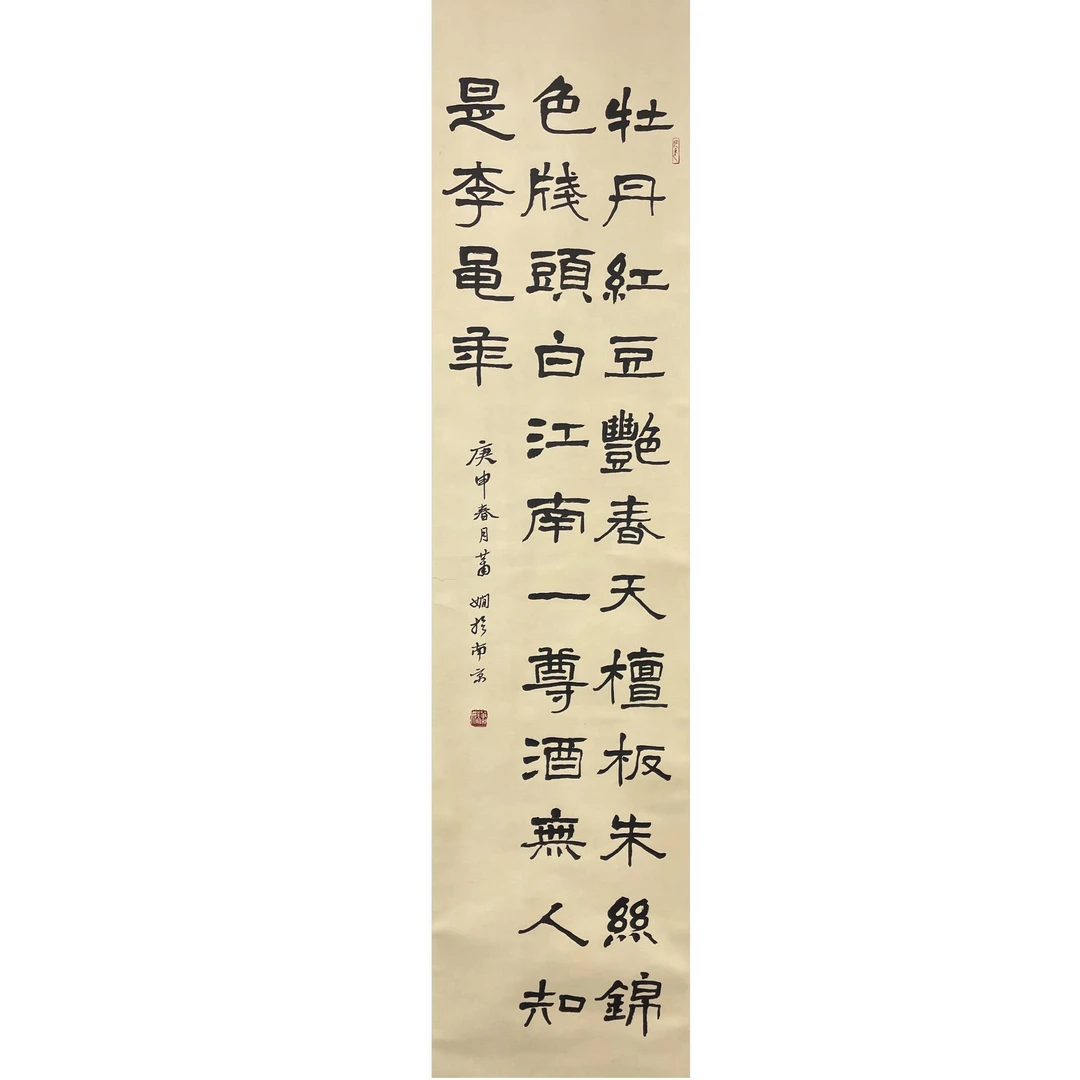 牡丹紅豆艷春天檀板朱絲錦
色牋頭白江南一尊酒無人知
是李黽年
庚申春月蕭嫻於南京